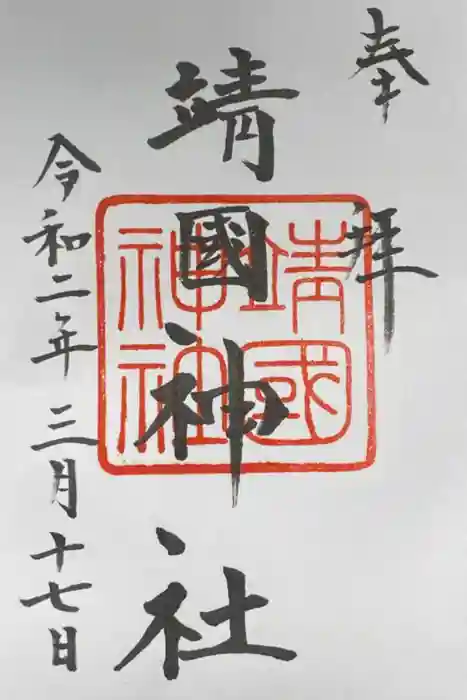 奉拝
靖國神社
靖國
神社
令和二年三月十七日